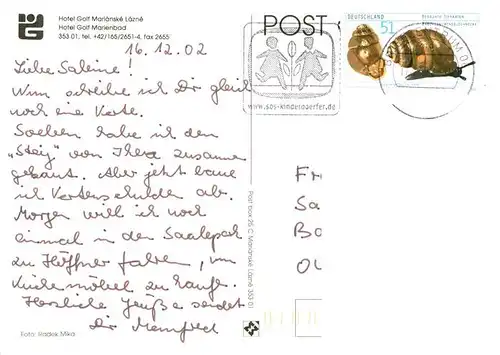 Hotel Golf Mariánské Lázně
Hotel Golf Marienbad
353 01, tel. +42/165/2651-4, fax 2655
POST
DEUTSCHLAND
51
www.sos-kinderdoerfer.de
16.12.02
Liebe Sabine!
Nun schreibe ich Dir gleich
noch eine Karte.
Soeben habe ich den
"Steig" von Ikea zusammen
gebaut. Aber jetzt baue
ich Kartenschulden ab.
Morgen will ich noch
einmal in den Saalepark
zu Höffner fahren, um
Küchenmöbel zu kaufen.
Herzliche Grüße sendet
Dir Manfred
Post box 25 C Mariánské Lázně 353 01
Fr
Sa
Bo
Foto: Radek Mika